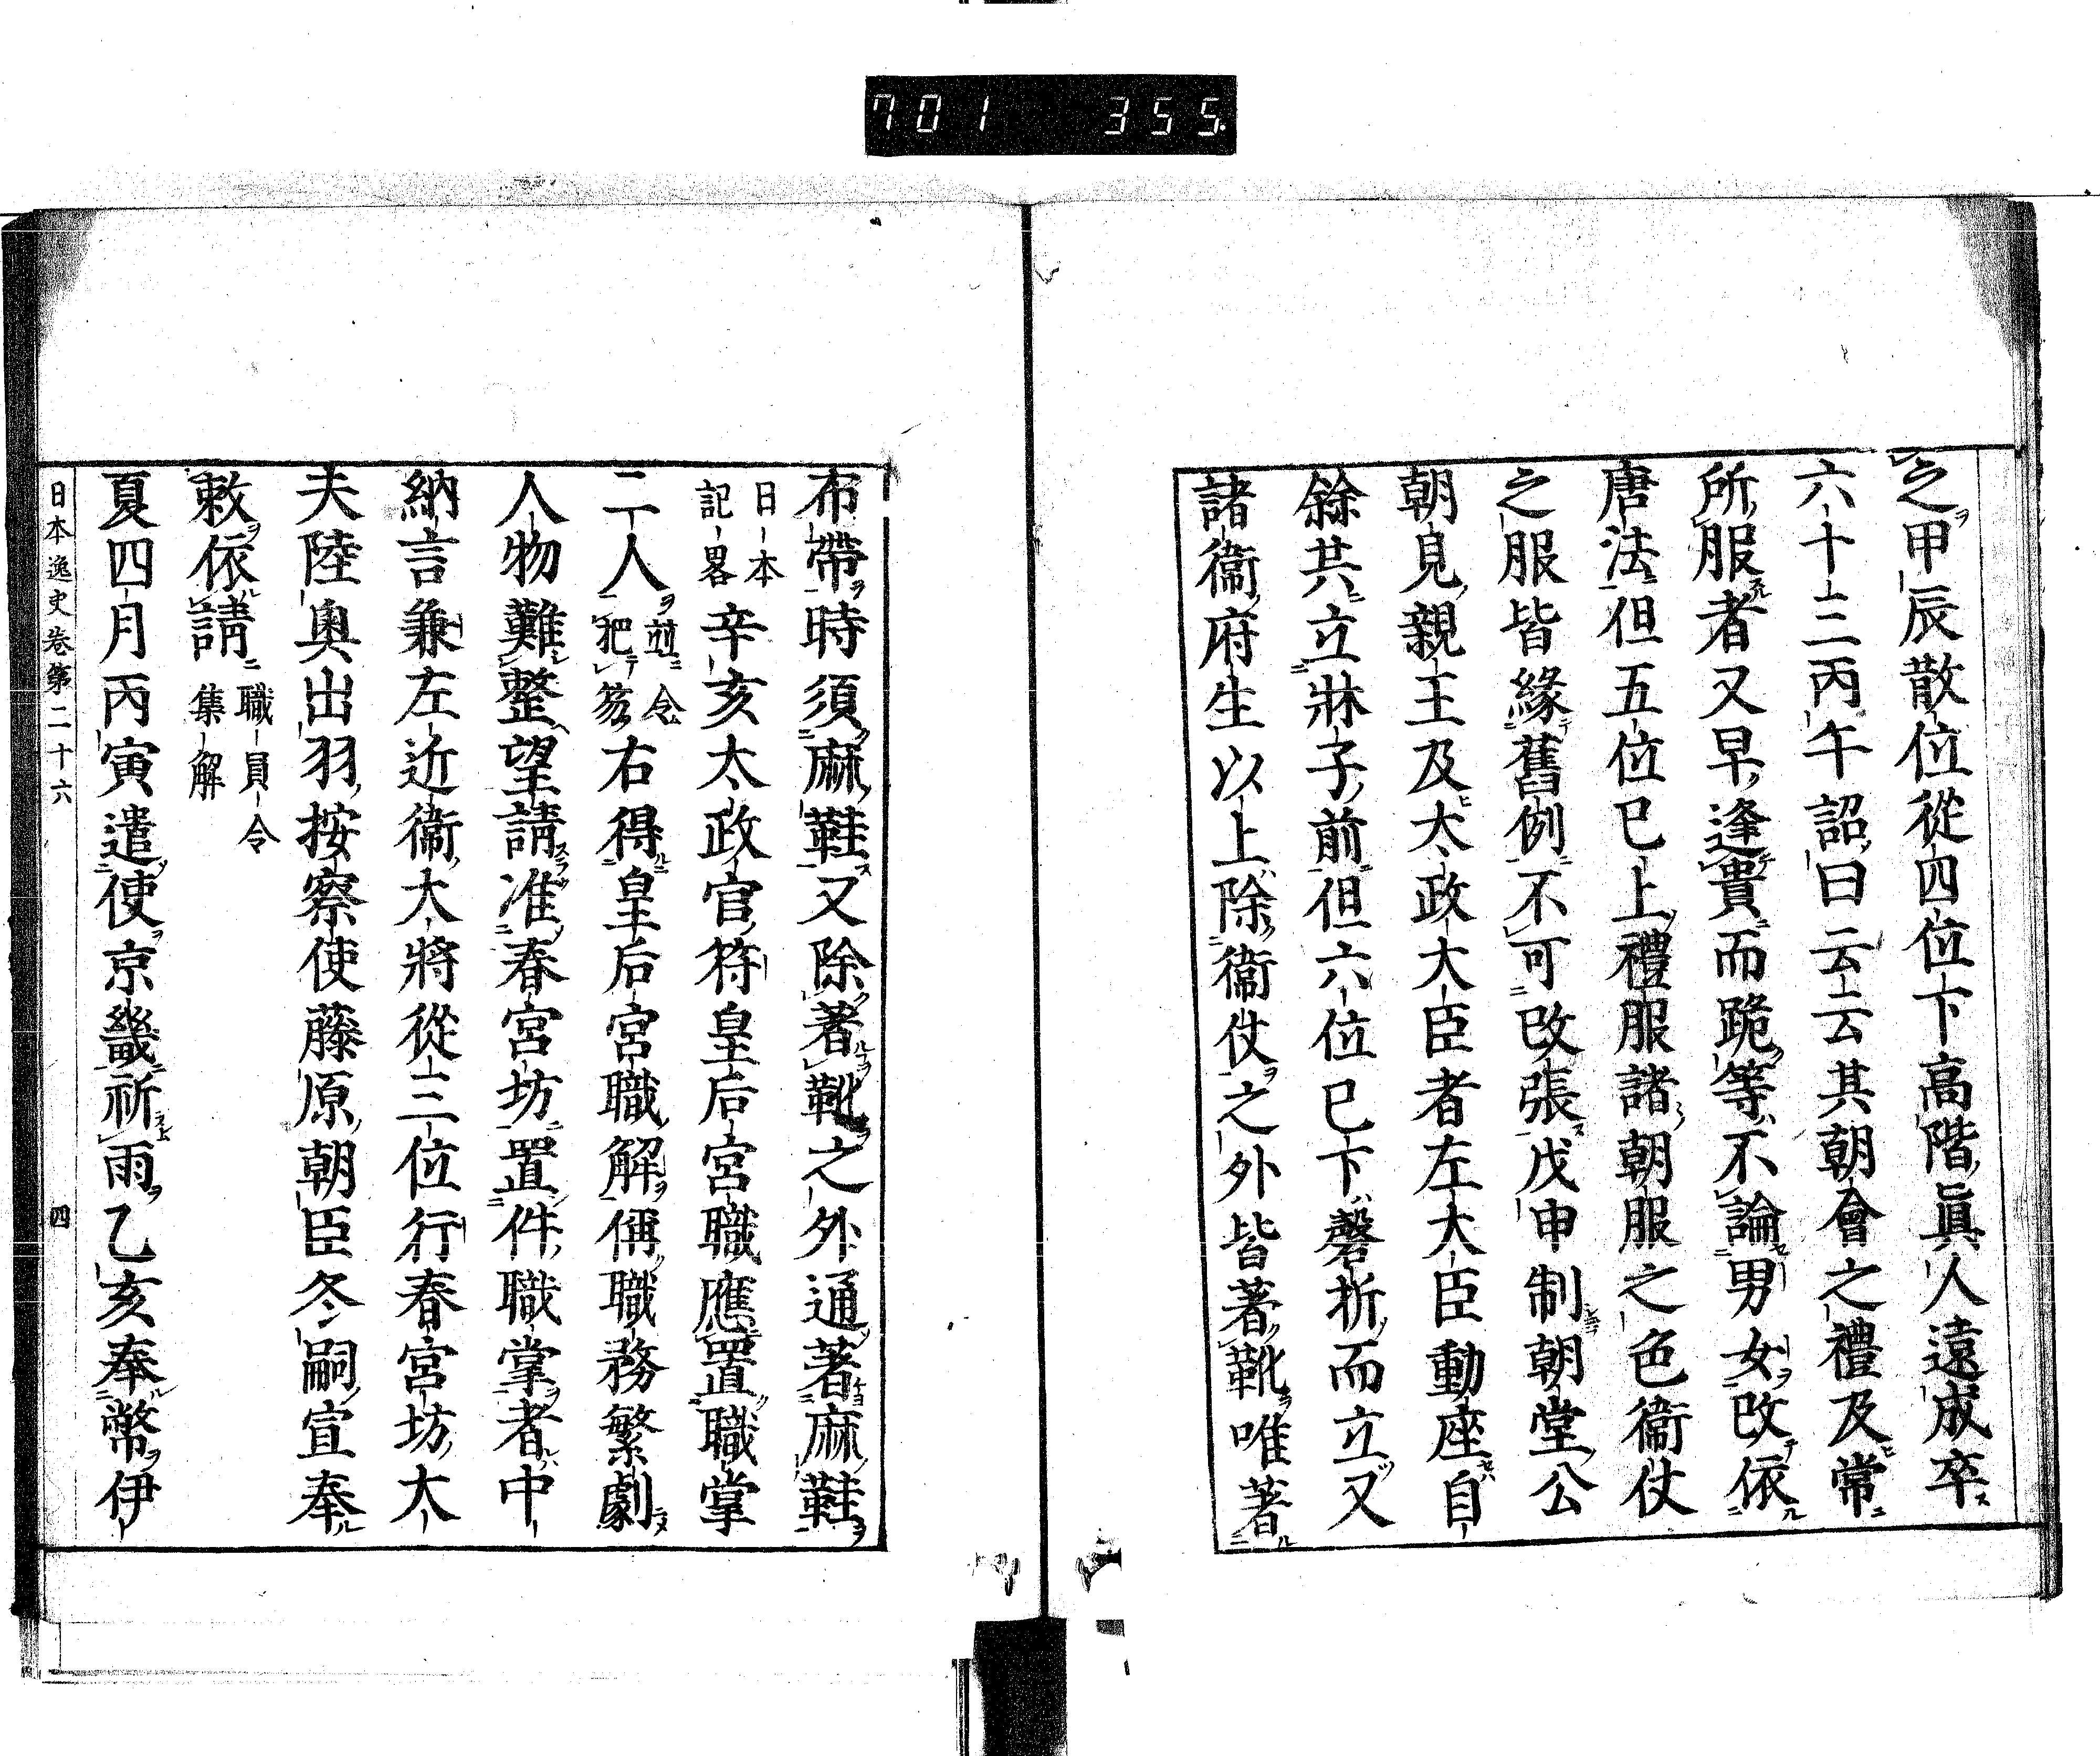 701 355
之甲辰散位從四位下高階眞人遠成卒
六十三丙午詔曰云云其朝會之禮及常
所服者又早逢貴而跪等不論男女改依
唐法但五位已上禮服諸朝服之色衞仗
之服皆緣舊例不可改張戊申制朝堂公
朝見親王及太政大臣者左大臣動座自
餘共立牀子前但六位已下磬折而立又
諸衞府生以上除衞仗之外皆著靴唯著
布帶時須麻鞋又除著靴之外通著麻鞋
日本
記畧
辛亥太政官符皇后宮職應置職掌
二人
並令
把笏
右得皇后宮職解偁職務繁劇
人物難整望請准春宮坊置件職掌者中
納言兼左近衞大將從三位行春宮坊大
夫陸奧出羽按察使藤原朝臣冬嗣宣奉
敕依請
職員令
集解
夏四月丙寅遣使京畿祈雨乙亥奉幣伊
日本逸史卷第二十六
四